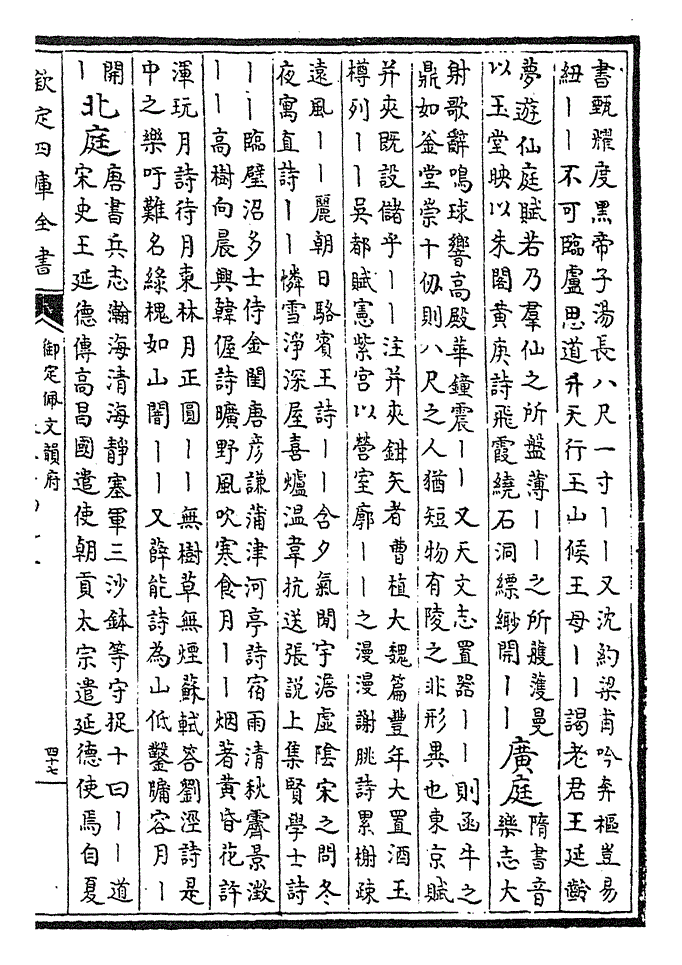 書甄耀度黑帝子湯長八尺一寸丨丨又沈約梁甫吟奔樞豈易
紐丨丨不可臨盧思道升天行玉山候王母丨丨謁老君王延齡
夢遊仙庭賦若乃羣仙之所盤薄丨丨之所曼
以玉堂映以朱閣黃庚詩飛霞繞石洞縹緲開丨丨
廣庭
隋書音
樂志大
射歌辭鳴球響高殿華鐘震丨丨又天文志置器丨丨則函牛之
鼎如釜堂崇十仞則八尺之人猶短物有陵之非形異也東京賦
并夾既設儲乎丨丨注并夾鉗矢者 曹植大魏篇豐年大置酒玉
樽列丨丨吳都賦憲紫宫以營室廓丨丨之漫漫謝朓詩累榭疎
遠風丨丨麗朝日駱賓王詩丨丨含夕氣閒宇澹虛陰宋之問冬
夜寓直詩丨丨憐雪淨深屋喜爐溫韋抗送張說上集賢學士詩
丨丨臨璧沼多士侍金閨唐彥謙蒲津河亭詩宿雨清秋霽景澄
丨丨高樹向晨興韓偓詩曠野風吹寒食月丨丨烟著黃昏花許
渾玩月詩待月東林月正圓丨丨無樹草無煙蘇軾答劉涇詩是
中之樂吁難名綠槐如山闇丨丨又薛能詩為山低鑿牖容月丨
開
丨
北庭
唐書兵志瀚海清海靜塞軍三沙鉢等守捉十曰丨丨道
宋史王延德傳高昌國遣使朝貢太宗遣延德使焉自夏
欽定四庫全書
御定佩文韻府
四十七